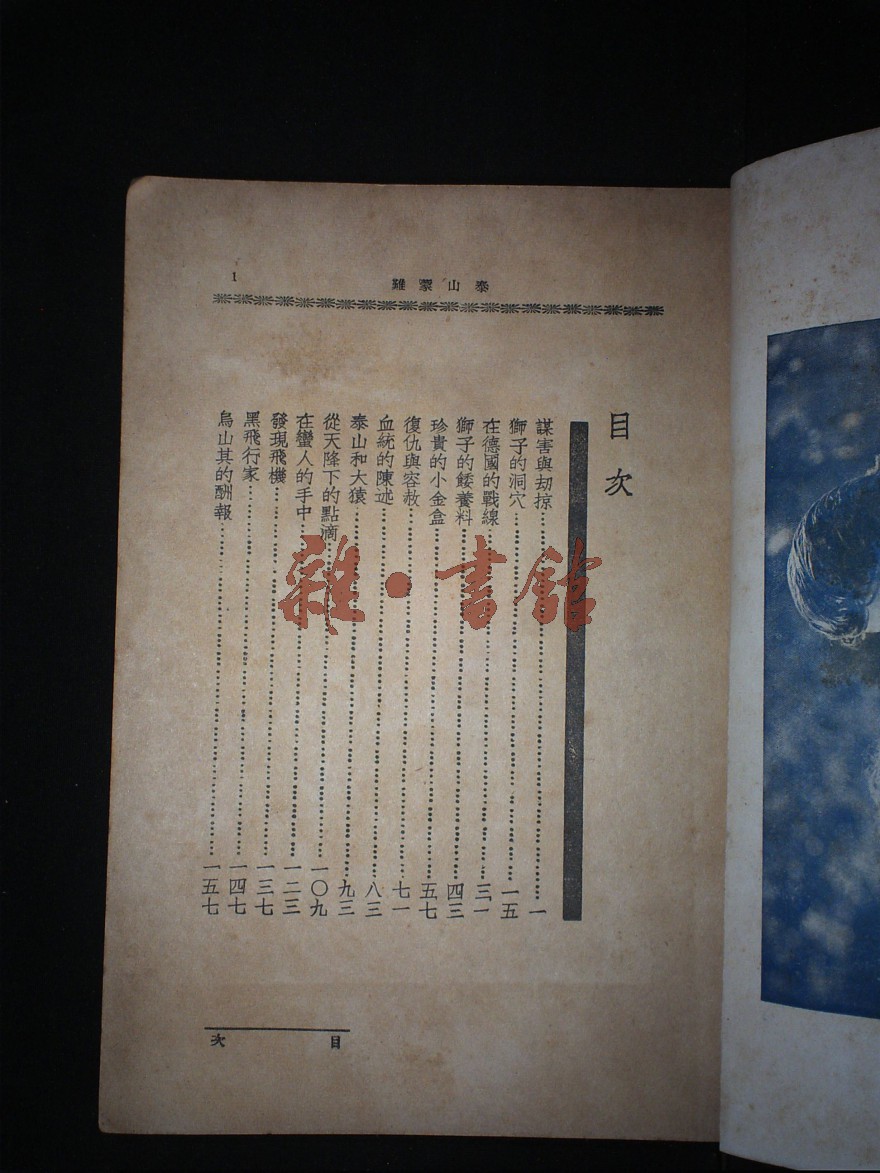 泰山蒙難
1
目次
謀害與劫掠……一
獅子的洞穴……一五
在德國的戰線……三一
獅子的餧養料……四三
珍貴的小金盒……五七
復仇與容赦……七一
血統的陳述……八三
泰山和大猿……九三
從天降下的點滴……一〇九
在蠻人的手中……一二三
發現飛機……一三七
黑飛行家……一四七
烏山其的酬報……一五七
目次
雜·書館